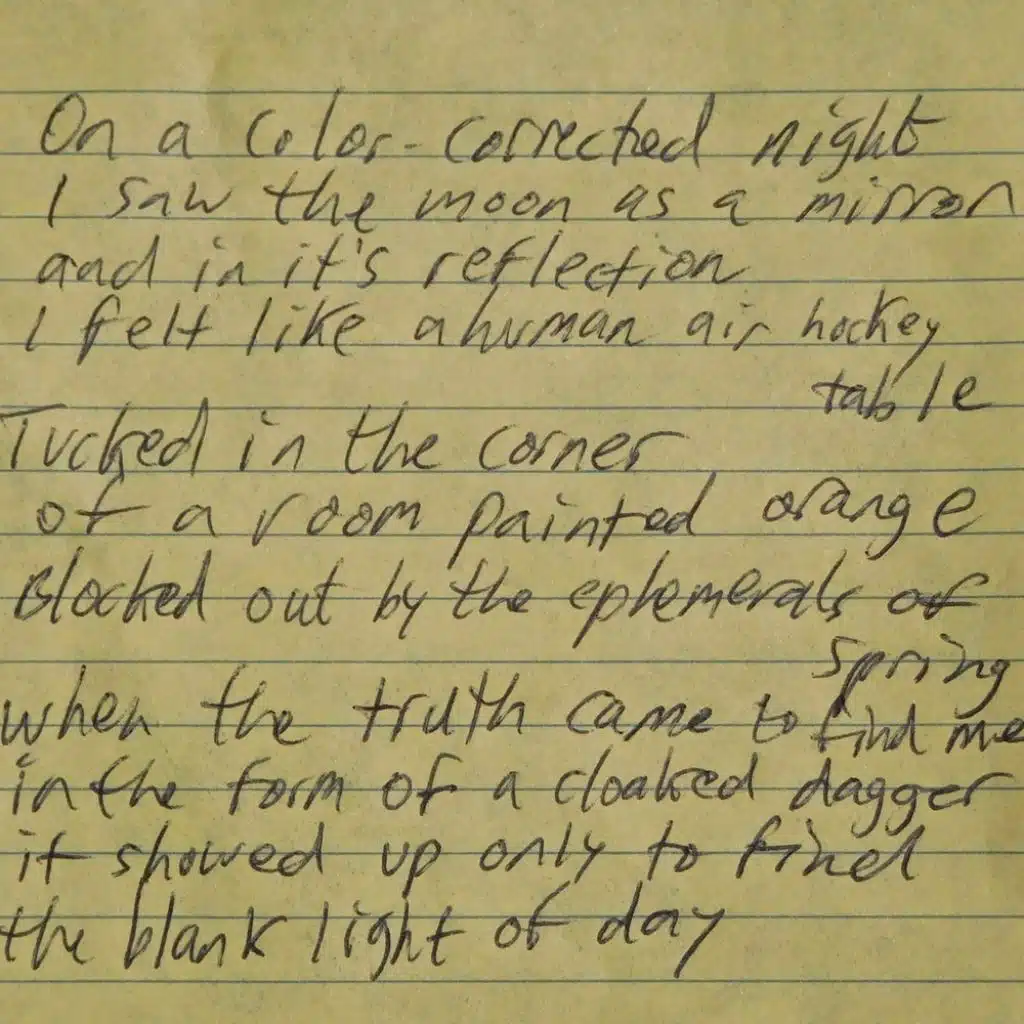 On a color-corrected night
I saw the moon as a mirror
and in it's reflection
I felt like a human air hockey
table
Tucked in the corner
of a room painted orange
Blocked out by the ephemerals of
spring
when the truth came to find me
in the form of a cloaked dagger
it showed up only to find
the blank light of day